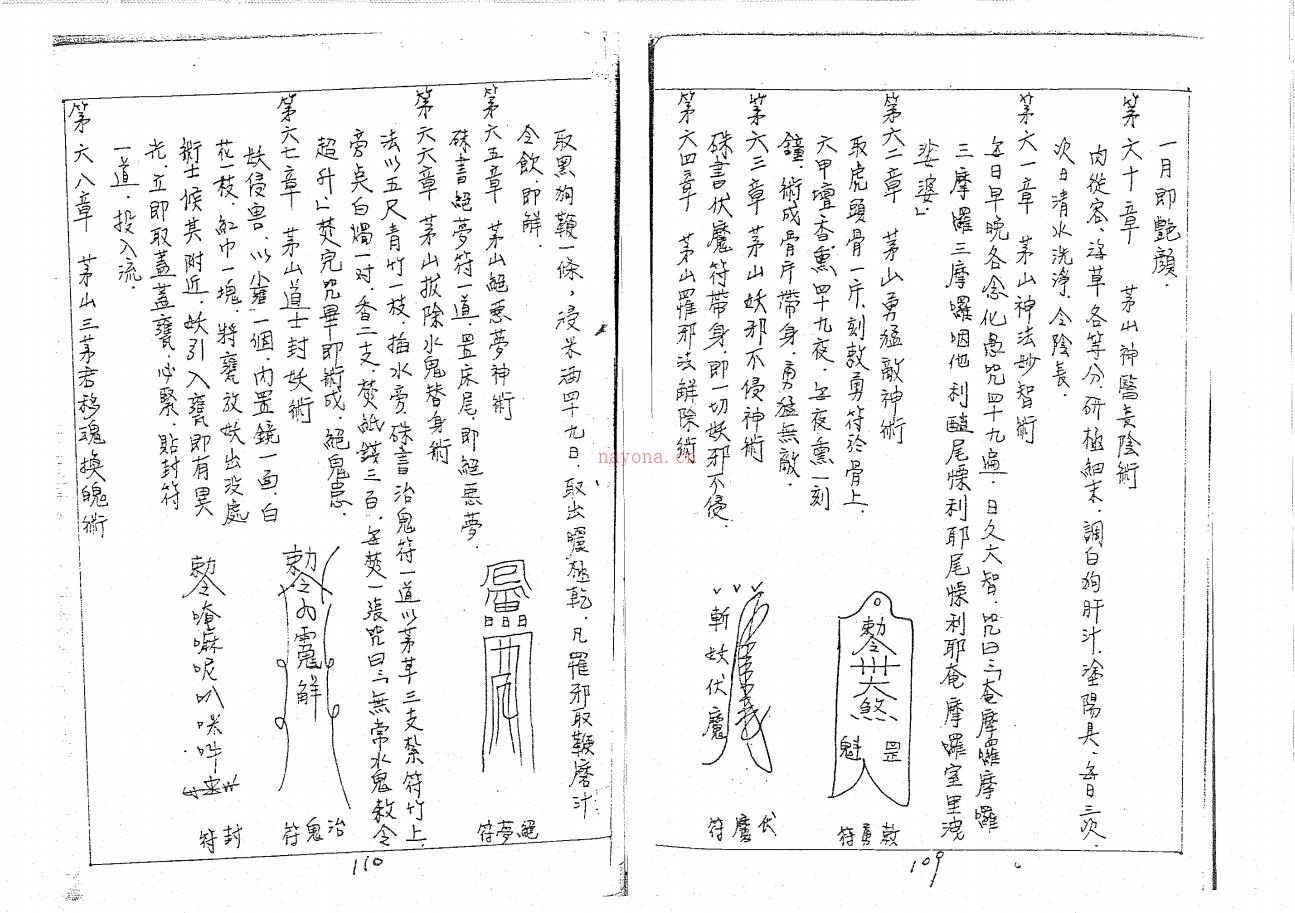 一月即艷顏．
第六十章　茅山神醫長陰術
肉從容、海草各等分．研極細末．調白狗肝汁．塗陽具．每日三次．
次日清水洗淨．令陰長．
第六一章　茅山神法妙智術
每日早晚各念化愚咒四十九遍．日久大智．咒曰：「奄摩囉摩囉
三摩囉三摩囉咽他利醯尾㗚利耶尾㗚利耶奄摩囉室里溌
娑婆」
第六二章　茅山勇猛敵神術
取虎頭骨一片．刻敖勇符於骨上．
六甲壇香熏四十九夜．每夜熏一刻
鐘．術成骨片帶身．勇猛無敵．
第六三章　茅山妖邪不侵神術
硃書伏魔符帶身．即一切妖邪不侵．
第六四章　茅山罹邪法解除術
勅令
大煞
魁 罡
敖勇符
斬妖伏魔
伏魔符
109
取黑狗鞭一條，浸米酒四十九日．取出曬極乾．凡罹邪取鞭磨汁
令飲．即解．
第六五章　茅山絕惡夢神術
硃書絕夢符一道．置床尾．即絕惡夢．
第六六章　茅山拔除水鬼替身術
法以五尺青竹一枝．插水旁．硃書治鬼符一道以茅草三支紮符竹上．
旁点白燭一对．香二支．焚紙錢三百．每焚一張咒曰：「無常水鬼敕令
超升」焚完咒畢即術成．絕鬼祟．
第六七章　茅山道士封妖術
妖侵害．以小甕一個．內置鏡一面．白
花一枝．紅巾一塊．將甕放妖出没處
術士候其附近．妖引入甕即有異
光．立即取蓋蓋甕．必緊．貼封符
一道．投入流．
第六八章　茅山三茅君移魂換魄術
絕夢符
勅令
解
治鬼符
勅令唵嘛呢叭咪吽
封符
110
nayona.cn